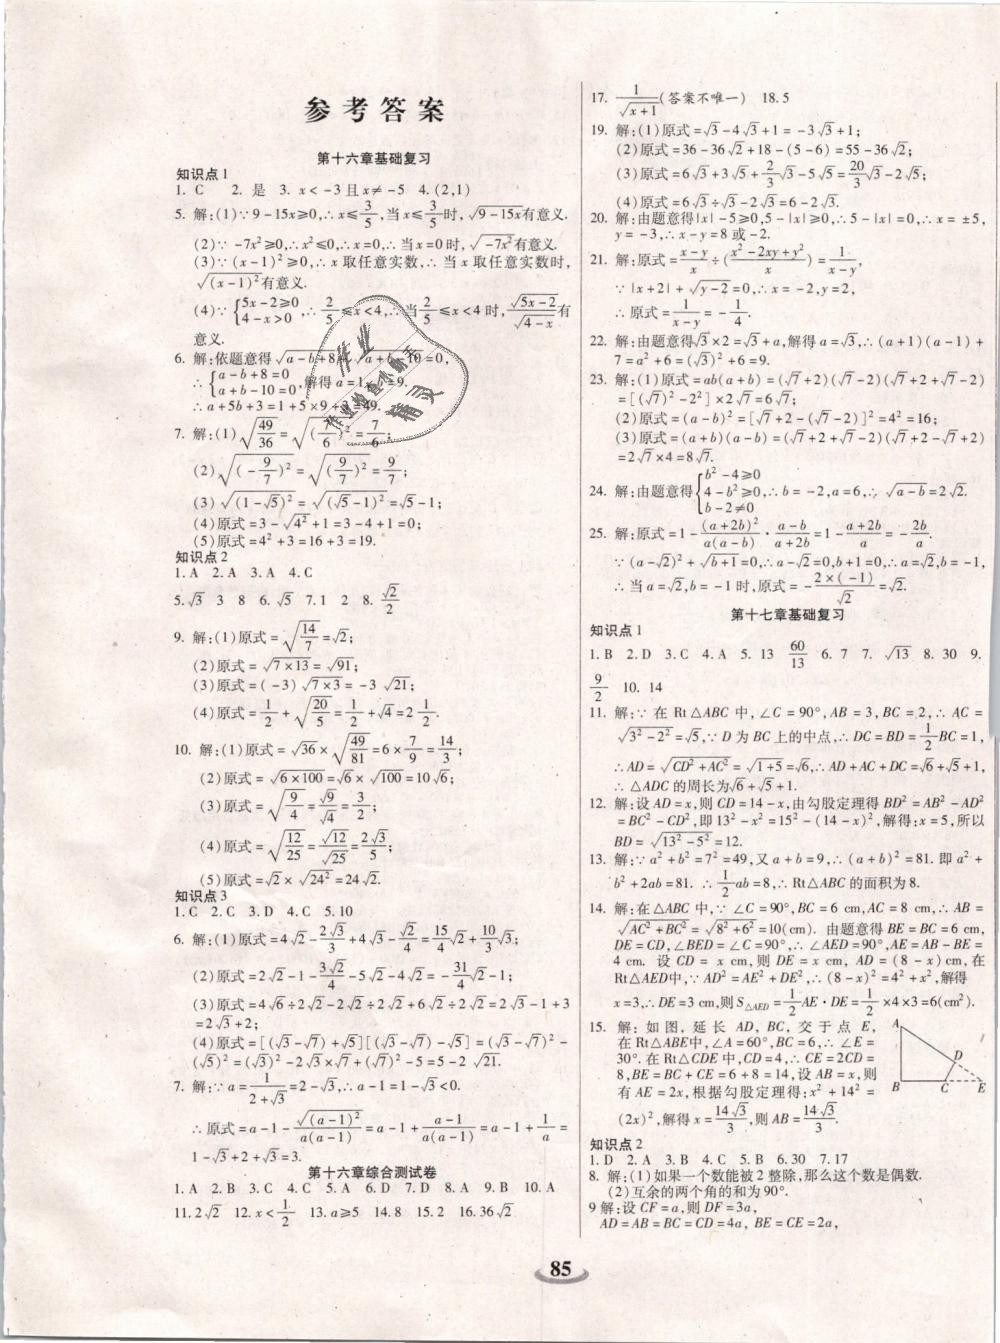 参考答案
第十六章基础复习
知识点1
1. C 2. 是 3. x<-3且x≠-5 4. (2,1)
5. 解:(1)∵9-15x≥0,∴x≤3/5,当x≤3/5时,√(9-15x)有意义.
(2)∵-7x²≥0,∴x²≤0,∴x=0,∴当x=0时,√(-7x²)有意义.
(3)∵(x-1)²≥0,∴x取任意实数,∴当x取任意实数时,
√((x-1)²)有意义.
(4)∵{5x-2≥0 4-x>0,∴2/5≤x<4,∴当2/5≤x<4时,√(5x-2)/√(4-x)有
意义.
6. 解:依题意得√(a-b+8)+√(a+b-10)=0,
∴{a-b+8=0 a+b-10=0,解得a=1,b=9.
∴a+5b+3=1+5×9+3=49.
7. 解:(1)√(49/36)=√((7/6)²)=7/6;
(2)√((-9/7)²)=√((9/7)²)=9/7;
(3)√((1-√5)²)=√((√5-1)²)=√5-1;
(4)原式=3-√(4²)+1=3-4+1=0;
(5)原式=4²+3=16+3=19.
知识点2
1. A 2. A 3. A 4. C
5. √3 3 8 6. √5 7. 1 2 8. √2/2
9. 解:(1)原式=√(14/7)=√2;
(2)原式=√(7×13)=√91;
(3)原式=(-3)√(7×3)=-3√21;
(4)原式=1/2+√(20/5)=1/2+√4=2 1/2.
10. 解:(1)原式=√36×√(49/81)=6×7/9=14/3;
(2)原式=√(6×100)=√6×√100=10√6;
(3)原式=√(9/4)=√9/√4=3/2;
(4)原式=√(12/25)=√12/√25=2√3/5;
(5)原式=√2×√(24²)=24√2.
知识点3
1. C 2. C 3. D 4. C 5. 10
6. 解:(1)原式=4√2-2√3/3+4√3-√2/4=15/4√2+10/3√3;
(2)原式=2√2-1-3√2/4-5√2-4√2=-31/4√2-1;
(3)原式=4√6÷2√2-2√2÷2√2+6√2÷2√2=2√3-1+3
=2√3+2;
(4)原式=[(√3-√7)+√5][(√3-√7)-√5]=(√3-√7)²-
(√5)²=(√3)²-2√3×√7+(√7)²-5=5-2√21.
7. 解:∵a=1/(2+√3)=2-√3,∴a-1=1-√3<0.
∴原式=a-1-√((a-1)²)/(a(a-1))=a-1+(a-1)/(a(a-1))=a-1+1/a=
1-√3+2+√3=3.
第十六章综合测试卷
1. A 2. B 3. C 4. C 5. A 6. D 7. D 8. A 9. B 10. A
11. 2√2 12. x<1/2 13. a≥5 14. 8 15. 2 16. 36√2
17. 1/√(x+1)(答案不唯一) 18. 5
19. 解:(1)原式=√3-4√3+1=-3√3+1;
(2)原式=36-36√2+18-(5-6)=55-36√2;
(3)原式=6√3+3√5+2/3√3-5√5=20/3√3-2√5;
(4)原式=6√3÷√3-2√3=6-2√3.
20. 解:由题意得|x|-5≥0,5-|x|≥0,∴5-|x|=0,∴x=±5,
y=-3,∴x-y=8或-2.
21. 解:原式=(x-y)/x÷((x²-2xy+y²)/x)=1/(x-y),
∵|x+2|+√(y-2)=0,∴x=-2,y=2,
∴原式=1/(x-y)=-1/4.
22. 解:由题意得√3×2=√3+a,解得a=√3,∴(a+1)(a-1)+
7=a²+6=(√3)²+6=9.
23. 解:(1)原式=ab(a+b)=(√7+2)(√7-2)(√7+2+√7-2)
=[(√7)²-2²]×2√7=6√7;
(2)原式=(a-b)²=[√7+2-(√7-2)]²=4²=16;
(3)原式=(a+b)(a-b)=(√7+2+√7-2)(√7+2-√7+2)
=2√7×4=8√7.
24. 解:由题意得{b²-4≥0 4-b²≥0,∴b=-2,a=6,∴√(a-b)=2√2. b-2≠0
25. 解:原式=1-(a+2b)²/(a(a-b))·(a-b)/(a+2b)=1-(a+2b)/a=-2b/a.
∵(a-√2)²+√(b+1)=0,∴a-√2=0,b+1=0,∴a=√2,b=-1,
∴当a=√2,b=-1时,原式=-2×(-1)/√2=√2.
第十七章基础复习
知识点1
1. B 2. D 3. C 4. A 5. 13 60/13 6. 7 7. √13 8. 30 9.
9/2 10. 14
11. 解:∵在Rt△ABC中,∠C=90°,AB=3,BC=2,∴AC=
√(3²-2²)=√5,∵D为BC上的中点,∴DC=BD=1/2BC=1,
∴AD=√(CD²+AC²)=√(1+5)=√6,∴AD+AC+DC=√6+√5+1,
∴△ADC的周长为√6+√5+1.
12. 解:设AD=x,则CD=14-x,由勾股定理得BD²=AB²-AD²
=BC²-CD²,即13²-x²=15²-(14-x)²,解得:x=5,所以
BD=√(13²-5²)=12.
13. 解:∵a²+b²=7²=49,又a+b=9,∴(a+b)²=81. 即a²+
b²+2ab=81. ∴1/2ab=8,∴Rt△ABC的面积为8.
14. 解:在△ABC中,∵∠C=90°,BC=6 cm,AC=8 cm,∴AB=
√(AC²+BC²)=√(8²+6²)=10(cm). 由题意得BE=BC=6 cm,
DE=CD,∠BED=∠C=90°,∴∠AED=90°,AE=AB-BE=
4 cm. 设CD=x cm,则DE=x cm,AD=(8-x)cm,在
Rt△AED中,∵AD²=AE²+DE²,∴(8-x)²=4²+x²,解得
x=3,∴DE=3 cm,则S△AED=1/2AE·DE=1/2×4×3=6(cm²).
15. 解:如图,延长AD,BC,交于点E,
在Rt△ABE中,∠A=60°,BC=6,∴∠E=
30°. 在Rt△CDE中,CD=4,∴CE=2CD=
8,BE=BC+CE=6+8=14,设AB=x,则
有AE=2x,根据勾股定理得:x²+14²=
(2x)²,解得x=14√3/3,则AB=14√3/3.
A
D
B C E
知识点2
1. D 2. A 3. B 4. C 5. B 6. 30 7. 17
8. 解:(1)如果一个数能被2整除,那么这个数是偶数.
(2)互余的两个角的和为90°.
9 解:设CF=a,则DF=3a,
AD=AB=BC=CD=4a,BE=CE=2a,
85